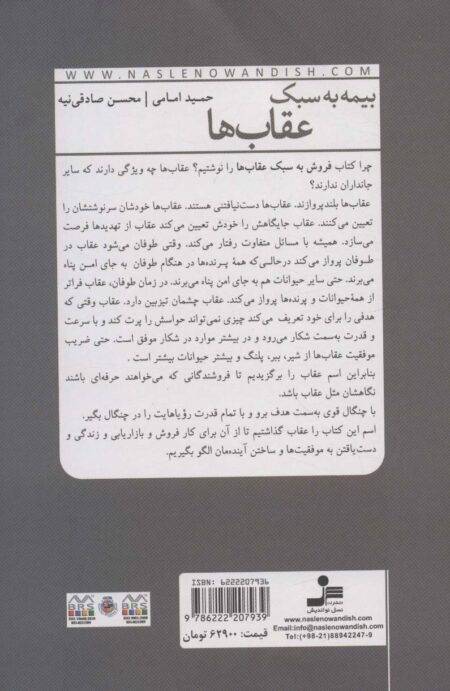 WWW.NASLENOWANDISH.COM
بیمه به سبک
حمید امامی | محسن صادقی‌نیه
عقاب‌ها
چرا کتاب فروش به سبک عقاب‌ها را نوشتیم؟ عقاب‌ها چه ویژگی دارند که سایر
جانداران ندارند؟
عقاب‌ها بلندپروازند. عقاب‌ها دست‌نیافتنی هستند. عقاب‌ها خودشان سرنوشتشان را
تعیین می‌کنند. عقاب جایگاهش را خودش تعیین می‌کند عقاب از تهدیدها فرصت
می‌سازد. همیشه با مسائل متفاوت رفتار می‌کند. وقتی طوفان می‌شود عقاب در
طوفان پرواز می‌کند درحالی‌که همهٔ پرنده‌ها در هنگام طوفان به جای امن پناه
می‌برند. حتی سایر حیوانات هم به جای امن پناه می‌برند. در زمان طوفان، عقاب فراتر
از همهٔ حیوانات و پرنده‌ها پرواز می‌کند. عقاب چشمان تیزبین دارد. عقاب وقتی که
هدفی را برای خود تعریف می‌کند چیزی نمی‌تواند حواسش را پرت کند و با سرعت
و قدرت به‌سمت شکار می‌رود و در بیشتر موارد در شکار موفق است. حتی ضریب
موفقیت عقاب‌ها از شیر، ببر، پلنگ و بیشتر حیوانات بیشتر است .
بنابراین اسم عقاب را برگزیدیم تا فروشندگانی که می‌خواهند حرفه‌ای باشند
نگاهشان مثل عقاب باشد.
با چنگال قوی به‌سمت هدف برو و با تمام قدرت رؤیاهایت را در چنگال بگیر.
اسم این کتاب را عقاب گذاشتیم تا از آن برای کار فروش و بازاریابی و زندگی و
دست‌یافتن به موفقیت‌ها و ساختن آینده‌مان الگو بگیریم.
ISBN: 6222207936
9 786222 207939
قیمت: ۶۲۹۰۰ تومان
نسل نواندیش
www.naslenowandish.com
Email:info@naslenowandish.com
Tel:(+98-21)88942247-9
BRS
BRS